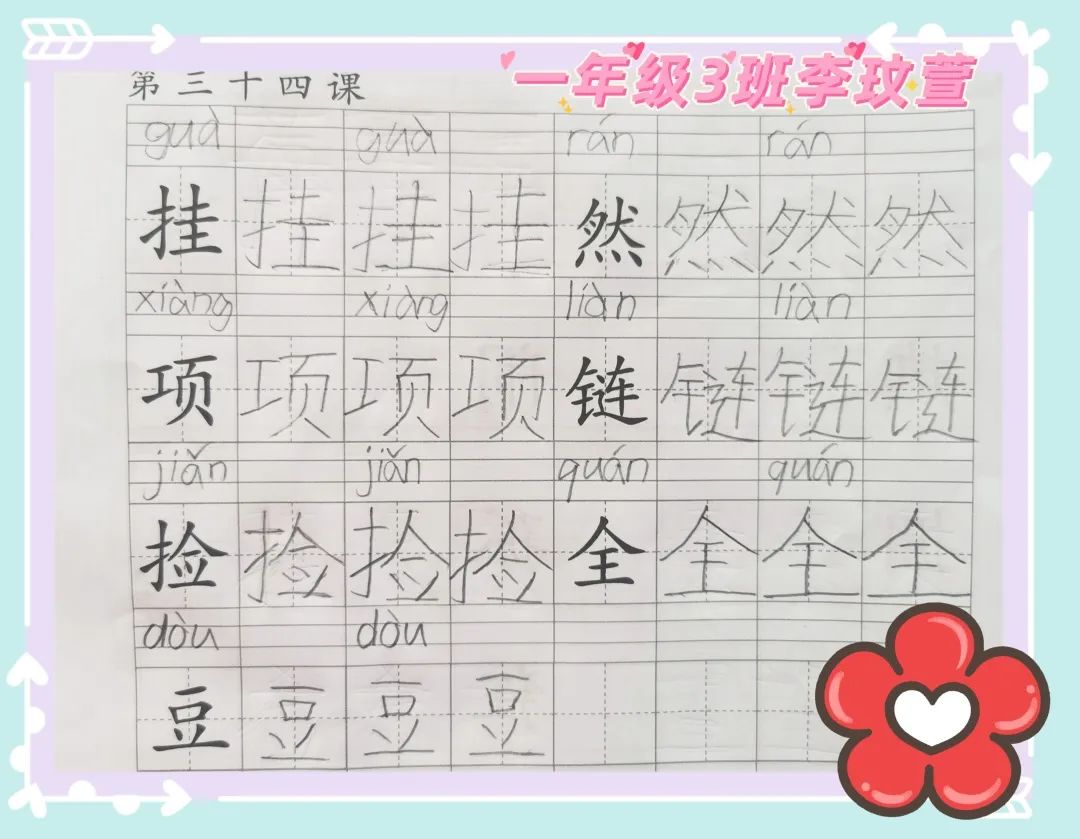 第三十四课
一年级3班李玟萱
guà guà rán rán
挂 挂 挂 挂 然 然 然 然
xiàng xiàng liàn liàn
项 项 项 项 链 链 链 链
jiǎn jiǎn quán quán
捡 捡 捡 捡 全 全 全 全
dòu dòu
豆 豆 豆 豆